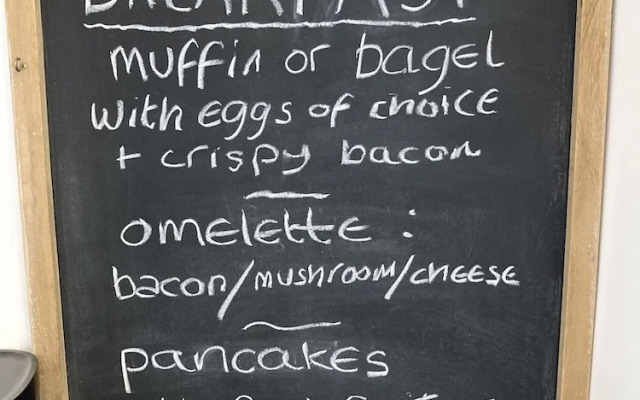 BREAKFAST
muffin or bagel
with eggs of choice
+ crispy bacon
omelette :
bacon/mushroom/cheese
pancakes